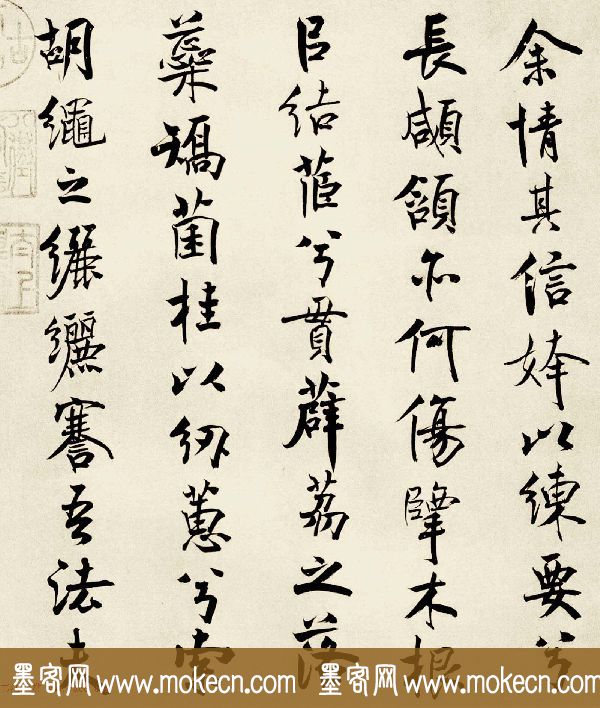 余情其信姱以練要兮
長顑頷亦何傷擥木根
㠯結茝兮貫薜荔之落
蘂矯菌桂以紉蕙兮索
胡繩之纚纚謇吾法夫
墨客网 www.mokecn.com 墨客网 www.mokecn.com